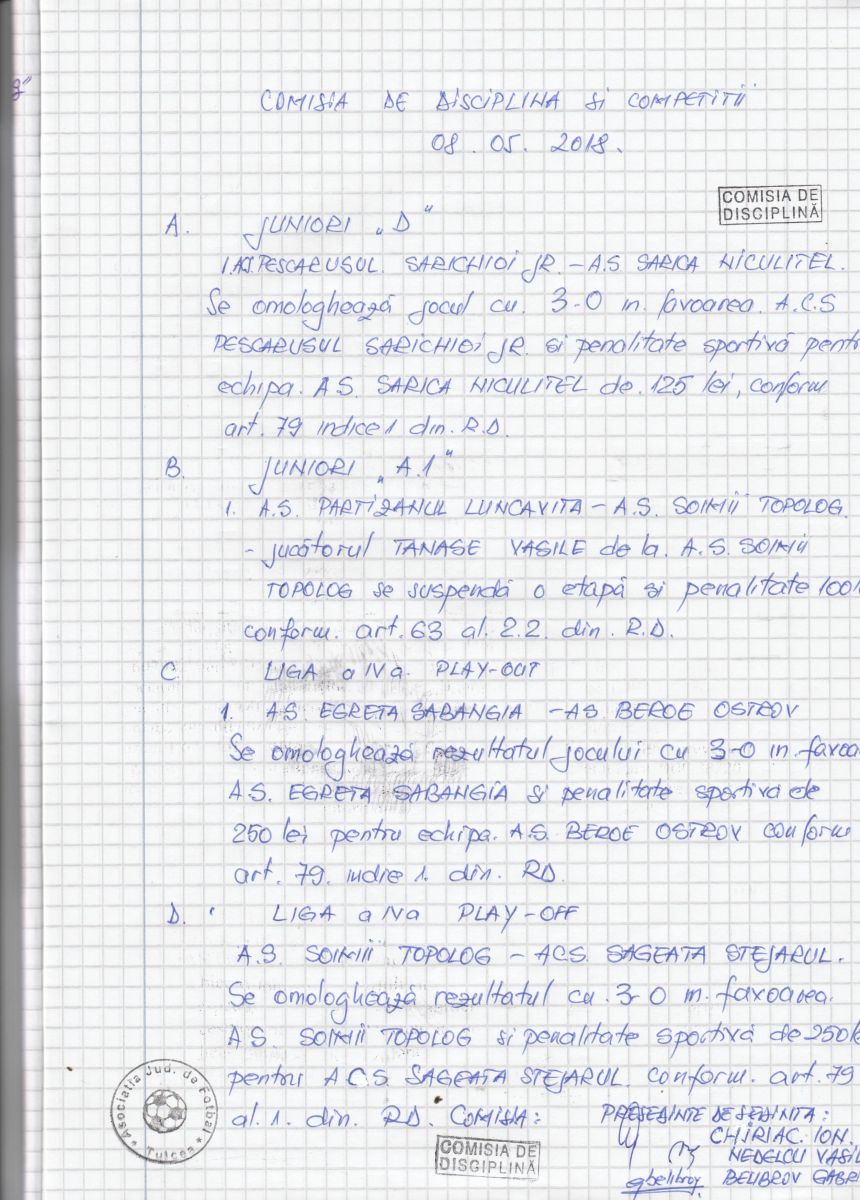 COMISIA DE DISCIPLINA si COMPETITII
08. 05. 2018.
COMISIA DE
DISCIPLINĂ
A. JUNIORI „D"
1. PESCARUSUL SARICHIOI JR. – A.S. SARICA NICULITEL.
Se omologhează jocul cu 3-0 in favoarea A.C.S
PESCARUSUL SARICHIOI JR. si penalitate sportivă pentr
echipa A.S. SARICA NICULITEL de 125 lei, conform
art. 79 indice 1 din R.D.
B. JUNIORI „A.1"
1. A.S. PARTIZANUL LUNCAVITA – A.S. SOIMII TOPOLOG.
- jucătorul TANASE VASILE de la A.S. SOIMII
TOPOLOG se suspendă o etapă si penalitate 100l
conform art. 63 al. 2.2. din R.D.
C. LIGA a IVa PLAY-OUT
1. AS. EGRETA SABANGIA – AS. BEROE OSTROV
Se omologhează rezultatul jocului cu 3-0 in favoa
A.S. EGRETA SABANGIA si penalitate sportiva de
250 lei pentru echipa A.S. BEROE OSTROV conform
art. 79. indice 1. din RD.
D. LIGA a IVa PLAY-OFF
A.S. SOIMII TOPOLOG – ACS. SAGEATA STEJARUL.
Se omologhează rezultatul cu 3-0 in favoarea
AS. SOIMII TOPOLOG si penalitate sportivă de 250 l
pentru ACS. SAGEATA STEJARUL. Conform art. 79
al. 1. din RD. COMISIA: PRESEDINTE DE SEDINTA:
CHIRIAC ION.
NEDELCU VASIL
gbelibrov BELIBROV GABR
Asociatia Jud. de Fotbal
* Tulcea *
COMISIA DE
DISCIPLINĂ